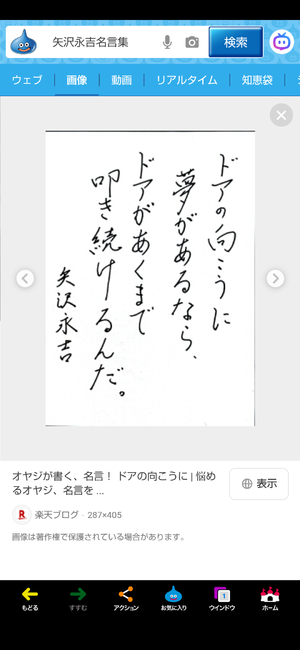 矢沢永吉名言集
検索
ウェブ
画像
動画
リアルタイム
知恵袋
ドアの向こうに
夢があるなら、
ドアがあくまで
叩き続けるんだ。
矢沢永吉
オヤジが書く、名言！ ドアの向こうに | 悩め
るオヤジ、名言を ...
表示
R
楽天ブログ · 287×405
画像は著作権で保護されている場合があります。
もどる
すすむ
アクション
お気に入り
1
ウインドウ
ホーム